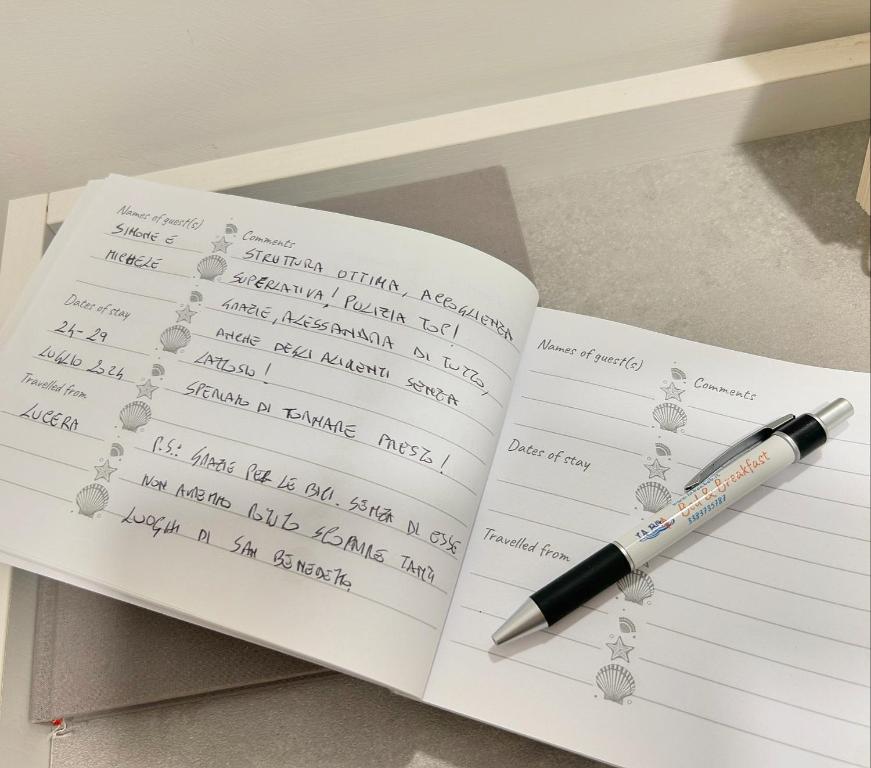 Names of guest(s)
SIMONE E
MICHELE
Dates of stay
24-29
LUGLIO 2024
Travelled from
LUCERA
Comments
STRUTTURA OTTIMA, ACCOGLIENZA
SUPERLATIVA! PULIZIA TOP!
GRAZIE, ALESSANDRA DI TUTTO,
ANCHE DEGLI ALIMENTI SENZA
LATTOSIO!
SPERIAMO DI TORNARE PRESTO!
P.S.: GRAZIE PER LE BICI. SENZA DI ESSE
NON AVREMMO POTUTO SCOPRIRE TANTI
LUOGHI DI SAN BENEDETTO.
Names of guest(s)
Dates of stay
Travelled from
Comments
Bed & Breakfast